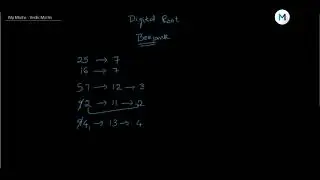 My Maths - Vedic Maths
Digital Root
M
25 → 7
16 → 7
57 → 12 → 3
92 → 11 → 2
94, → 13 → 4